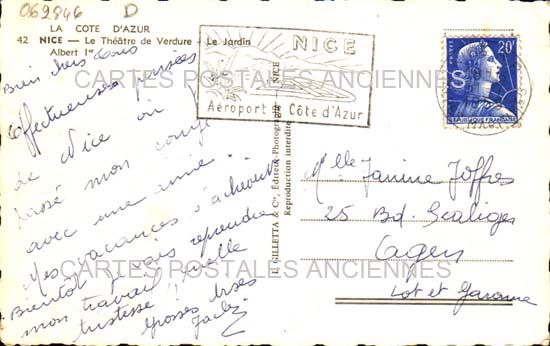 062846 D
LA COTE D'AZUR
42 NICE — Le Théâtre de Verdure - Le Jardin
Albert 1er
NICE
Aéroport Côte d'Azur
20F
POSTES
REPUBLIQUE FRANÇAISE
CARTES POSTALES ANCIENNES
Bien chers tous
Affectueuses pensées
de Nice où j'ai
passé mon congé
avec une amie.
Mes vacances s'achèvent
Bientôt je vais reprendre
mon travail quelle
tristesse !!
Grosses bises
L. GILLETTA & Cie, Éditeurs-Photographes NICE
Reproduction interdite
Mlle Janine Joffres
25 Bd. Scaliger
Agen
Lot et Garonne
CARTES POSTALES ANCIENNES